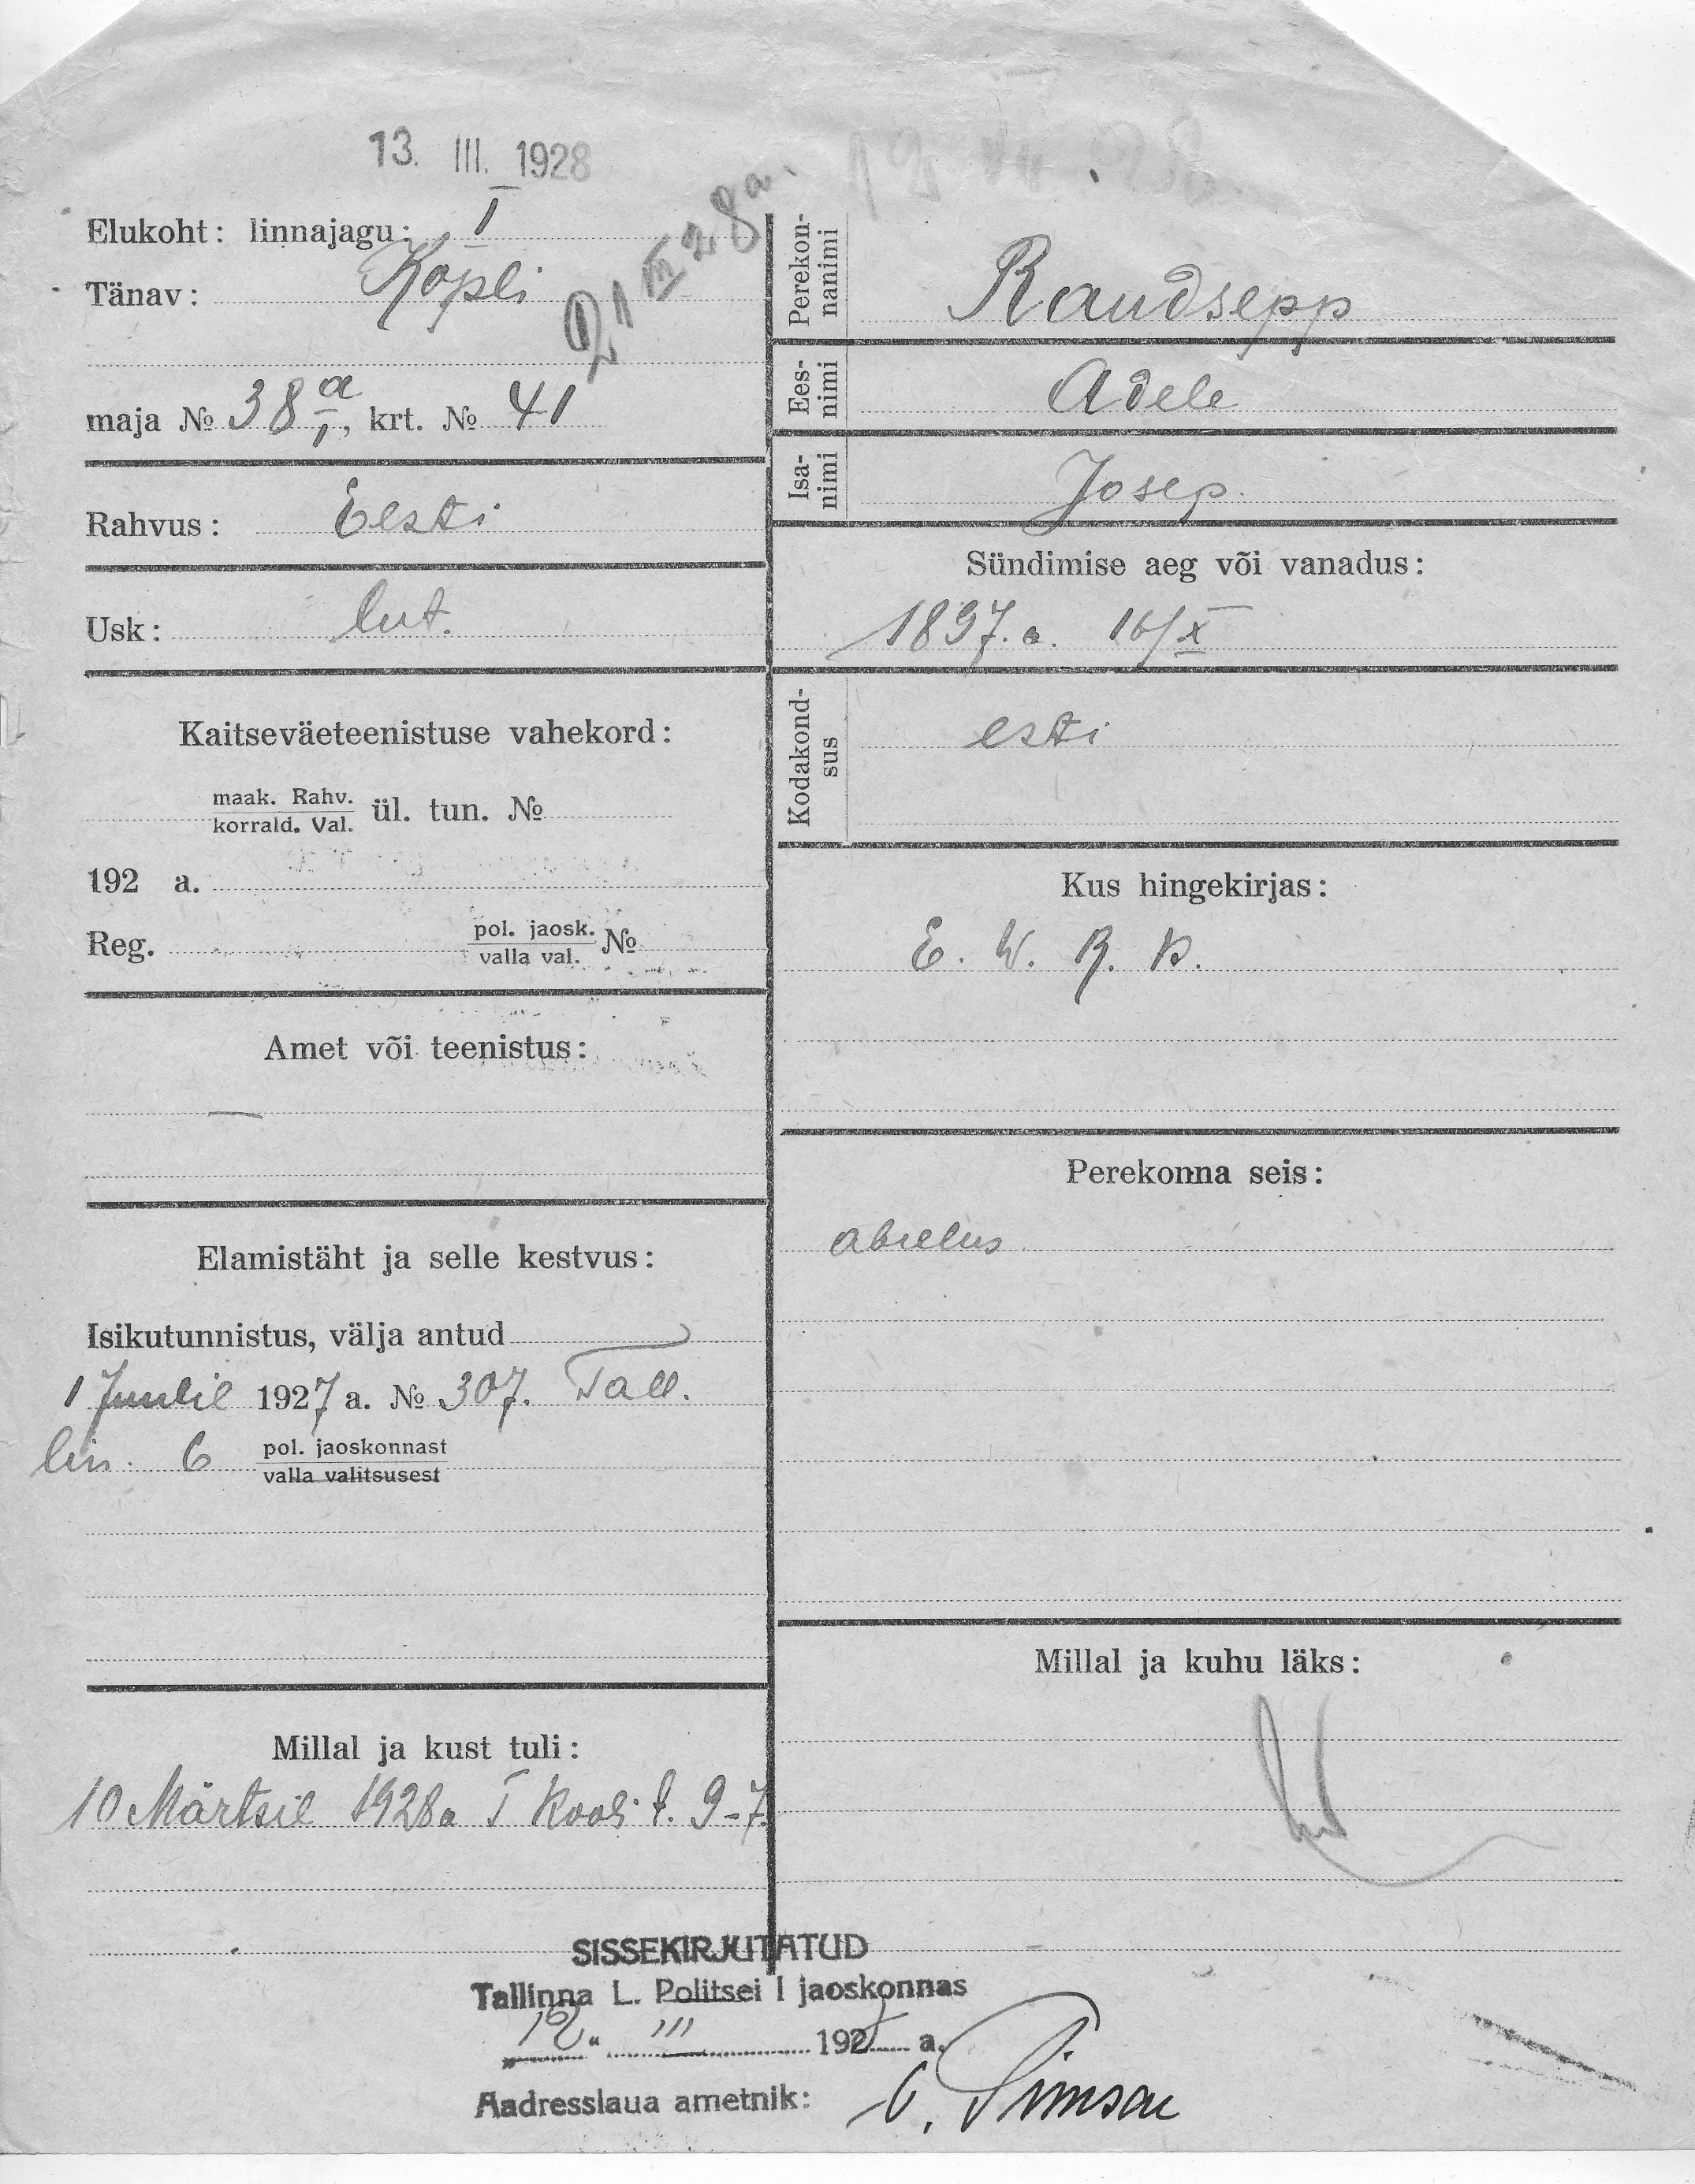 13. III. 1928
21 III 28 a.
Elukoht: linnajagu: I
Tänav: Kopli
maja № 38 a/1, krt. № 41
Rahvus: Eesti
Usk: lut.
Kaitseväeteenistuse vahekord:
maak. Rahv.
korrald. Val. ül. tun. №
192 a.
Reg. pol. jaosk.
valla val. №
Amet või teenistus:
—
Elamistäht ja selle kestvus:
Isikutunnistus, välja antud
1 Juulil 1927 a. № 307. Tall.
lin. 6 pol. jaoskonnast
valla valitsusest
Millal ja kust tuli:
10 Märtsil 1928 a I Kooli t. 9-7.
Perekon-
nanimi Raudsepp
Ees-
nimi Adele
Isa-
nimi Josep.
Sündimise aeg või vanadus:
1897. a. 16/X
Kodakond-
sus esti
Kus hingekirjas:
E. W. R. K.
Perekonna seis:
abielus
Millal ja kuhu läks:
SISSEKIRJUTATUD
Tallinna L. Politsei I jaoskonnas
"12" III 192 a.
Aadresslaua ametnik: